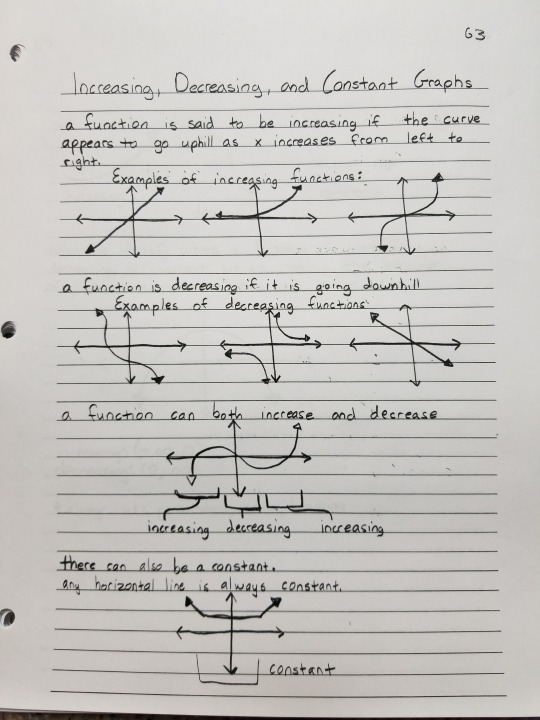 63
Increasing, Decreasing, and Constant Graphs
a function is said to be increasing if the curve
appears to go uphill as x increases from left to
right.
Examples of increasing functions:
a function is decreasing if it is going downhill
Examples of decreasing functions:
a function can both increase and decrease
increasing decreasing increasing
there can also be a constant.
any horizontal line is always constant.
constant